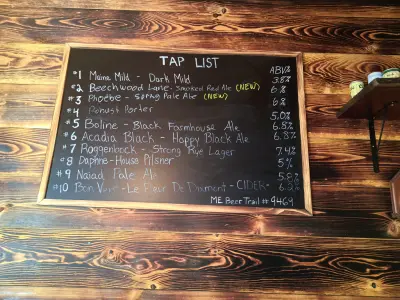 TAP LIST
ABV%
#1 Maine Mild - Dark Mild 3.8%
#2 Beechwood Lane - Smoked Red Ale (NEW) 6%
#3 Phoebe - Spring Pale Ale (NEW) 6%
#4 Robust Porter 5.0%
#5 Boline - Black Farmhouse Ale 6.8%
#6 Acadia Black - Hoppy Black Ale 6.8%
#7 Roggenbock - Strong Rye Lager 7.4%
#8 Daphne - House Pilsner 5%
#9 Naiad Pale Ale 5.8%
#10 Bon Vivre - Le Coeur De - CIDER -
ME Beer Trail # 9469